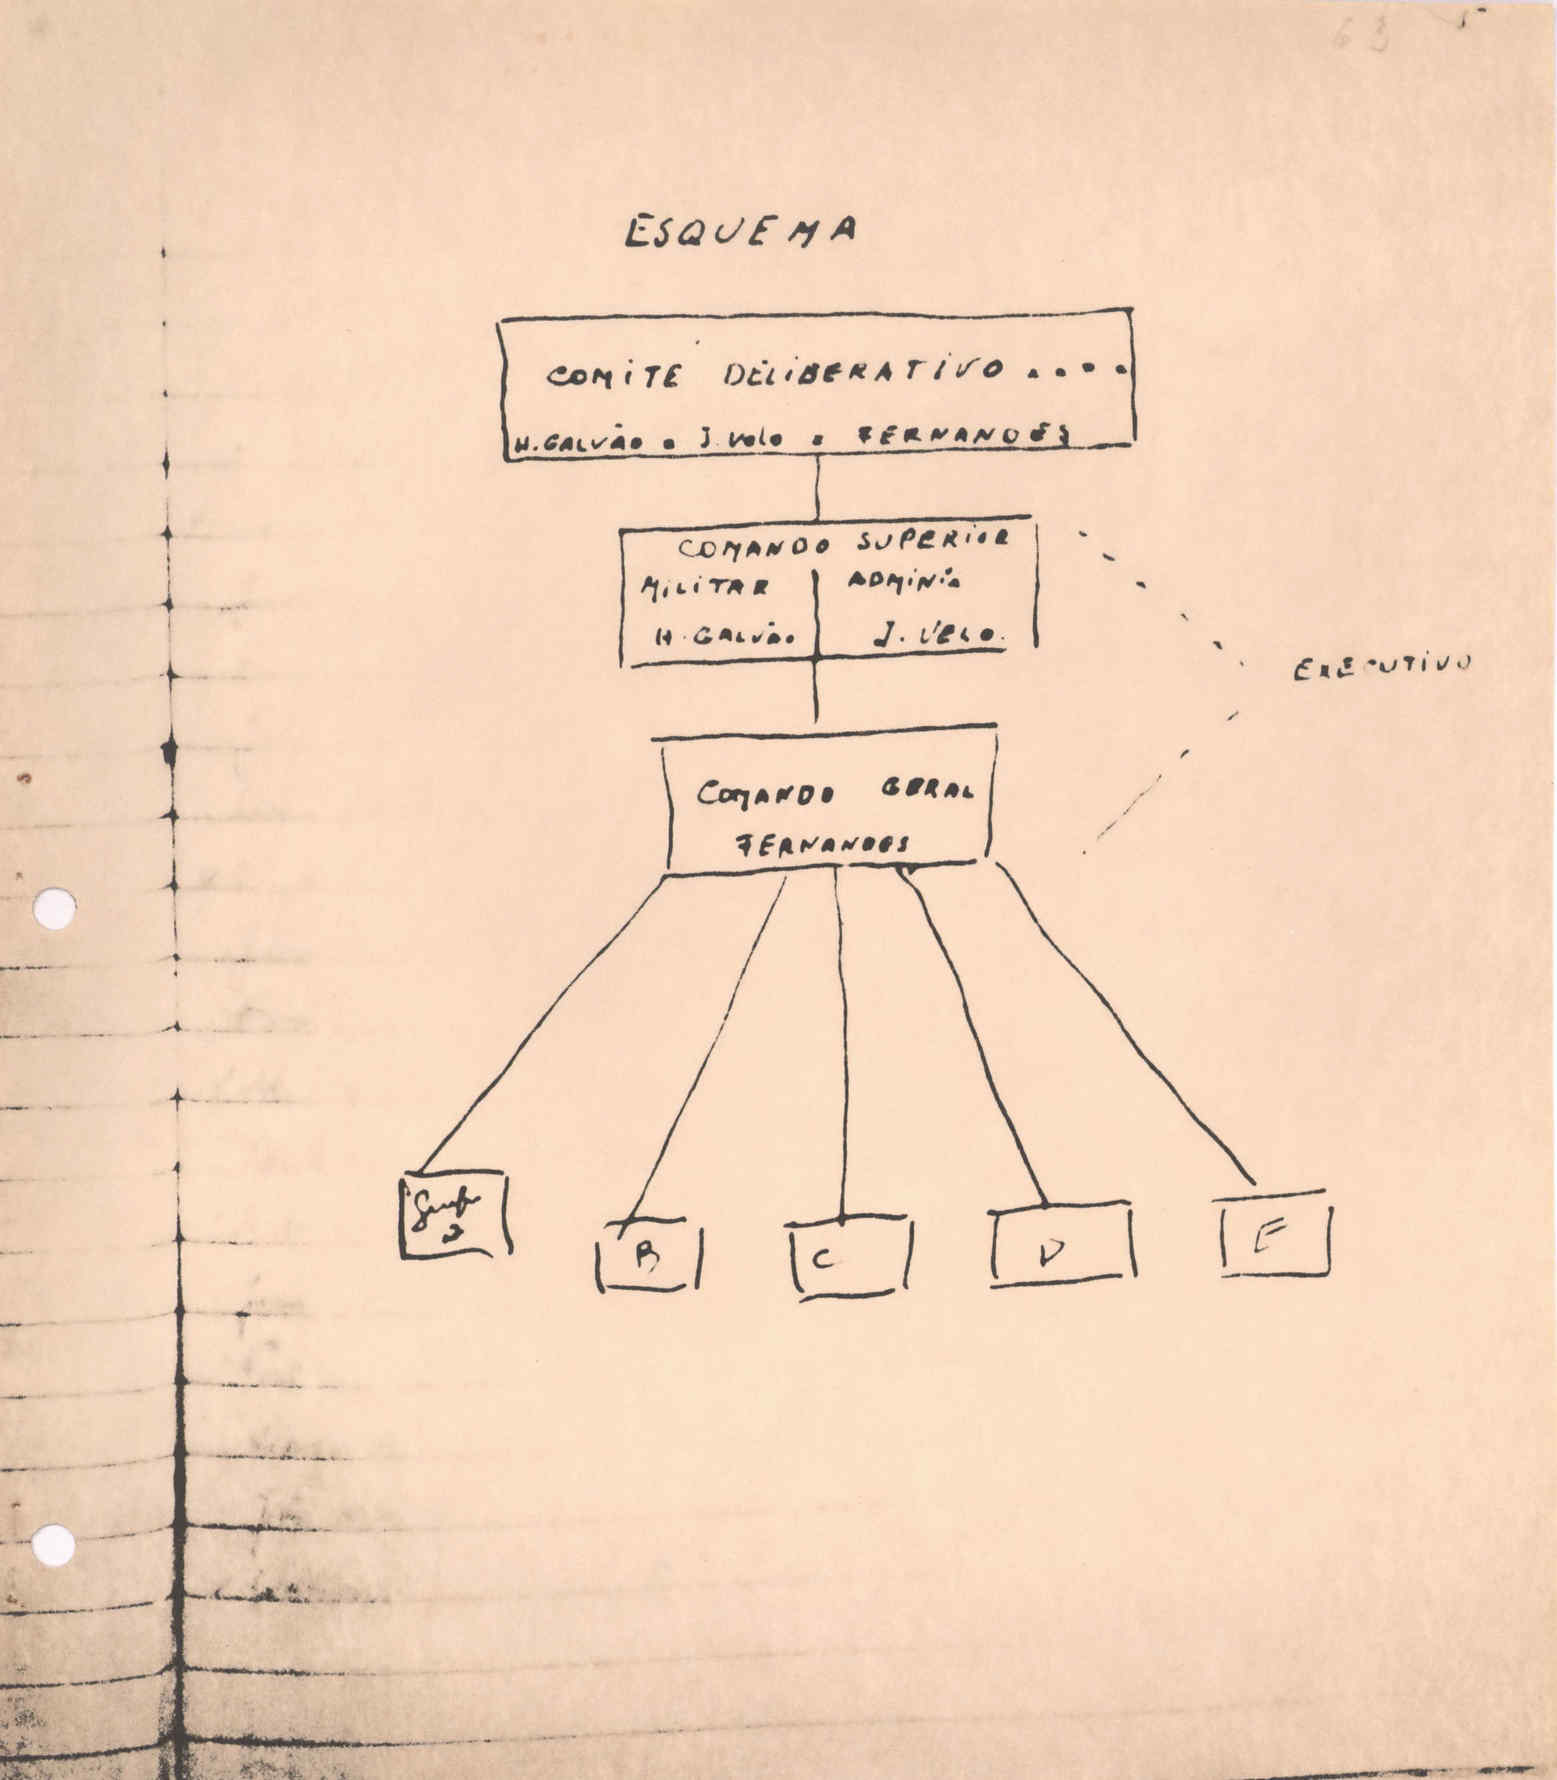 63
ESQUEMA
COMITE DELIBERATIVO ....
H. GALVÃO . J. Velo . FERNANDES
COMANDO SUPERIOR
MILITAR ADMINIS
H. GALVÃO J. VELO.
EXECUTIVO
COMANDO GERAL
FERNANDES
Grupo
B C D E